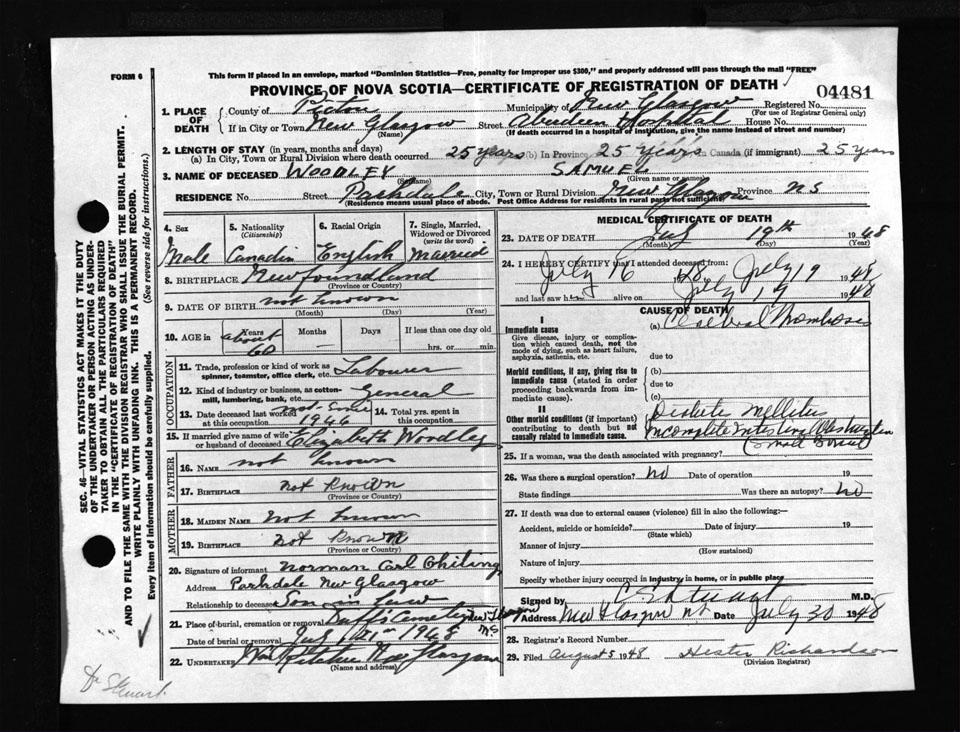 FORM 6
This form if placed in an envelope, marked "Dominion Statistics—Free, penalty for improper use $300," and properly addressed will pass through the mail "FREE"
PROVINCE OF NOVA SCOTIA—CERTIFICATE OF REGISTRATION OF DEATH
04481
1. PLACE OF DEATH
County of Pictou Municipality of New Glasgow Registered No.
(For use of Registrar General only)
If in City or Town New Glasgow Street Aberdeen Hospital House No.
(Name) (If death occurred in a hospital of institution, give the name instead of street and number)
2. LENGTH OF STAY (in years, months and days)
(a) In City, Town or Rural Division where death occurred 25 years (b) In Province 25 years Canada (if immigrant) 25 years
3. NAME OF DECEASED WOODLEY SAMUEL
(Surname) (Given name or names)
RESIDENCE No. Street Parkdale City, Town or Rural Division New Glasgow Province NS
(Residence means usual place of abode. Post Office Address for residents in rural parts not sufficient)
4. Sex
Male
5. Nationality
(Citizenship)
Canadin
6. Racial Origin
English
7. Single, Married, Widowed or Divorced
(write the word)
Married
8. BIRTHPLACE Newfoundland
(Province or Country)
9. DATE OF BIRTH not known
(Month) (Day) (Year)
10. AGE
Years Months Days If less than one day old
about 60 — hrs. or min.
OCCUPATION
11. Trade, profession or kind of work as spinner, teamster, office clerk, etc. Labourer
12. Kind of industry or business, as cotton-mill, lumbering, bank, etc. General
13. Date deceased last worked at this occupation 1946
14. Total yrs. spent in this occupation
15. If married give name of wife or husband of deceased Elizabeth Woodley
FATHER
16. Name not known
17. BIRTHPLACE not known
(Province or Country)
MOTHER
18. MAIDEN NAME not known
19. BIRTHPLACE not known
(Province or Country)
20. Signature of informant Norman Carl
Address Parkdale New Glasgow
Relationship to deceased Son in law
21. Place of burial, cremation or removal Duff's Cemetery New Glasgow NS
Date of burial or removal July 21st 1948
22. UNDERTAKER New Glasgow
(Name and address)
MEDICAL CERTIFICATE OF DEATH
23. DATE OF DEATH July 19th 1948
(Month) (Day) (Year)
24. I HEREBY CERTIFY that I attended deceased from:
July 16 1948 July 19 1948
and last saw him alive on July 19 1948
CAUSE OF DEATH
I
Immediate cause
Give disease, injury or complication which caused death, not the mode of dying, such as heart failure, asphyxia, asthenia, etc.
(a) Cerebral Thrombosis
due to
Morbid conditions, if any, giving rise to immediate cause (stated in order proceeding backwards from immediate cause).
(b)
due to
(c)
II
Other morbid conditions (if important) contributing to death but not causally related to immediate cause.
Diabetes Mellitus
Incomplete Intestinal Obstruction
(Small Bowel)
25. If a woman, was the death associated with pregnancy?
26. Was there a surgical operation? No Date of operation 19
State findings Was there an autopsy? No
27. If death was due to external causes (violence) fill in also the following:—
Accident, suicide or homicide? Date of injury 19
(State which)
Manner of injury
(How sustained)
Nature of injury
Specify whether injury occurred in industry, in home, or in public place
Signed by C S Stewart M.D.
Address New Glasgow NS Date July 30 1948
28. Registrar's Record Number
29. Filed August 5 1948 Hester Richardson
(Division Registrar)
SEC. 46—VITAL STATISTICS ACT MAKES IT THE DUTY
OF THE UNDERTAKER OR PERSON ACTING AS UNDERTAKER TO OBTAIN ALL THE PARTICULARS REQUIRED
IN THE "CERTIFICATE OF REGISTRATION OF DEATH"
AND TO FILE THE SAME WITH THE DIVISION REGISTRAR WHO SHALL ISSUE THE BURIAL PERMIT.
WRITE PLAINLY WITH UNFADING INK. THIS IS A PERMANENT RECORD.
Every item of information should be carefully supplied. (See reverse side for instructions.)
Dr Stewart.